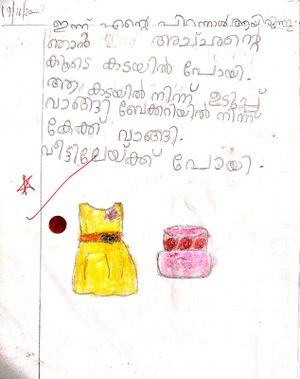 ഇന്ന് എന്റെ പിറന്നാൾ ആയിരുന്നു.
ഞാൻ അച്ഛന്റെ
കൂടെ കടയിൽ പോയി.
ആ കടയിൽ നിന്ന് ഉടുപ്പ്
വാങ്ങി ബേക്കറിയിൽ നിന്ന്
കേക്ക് വാങ്ങി.
വീട്ടിലേയ്ക്ക് പോയി.